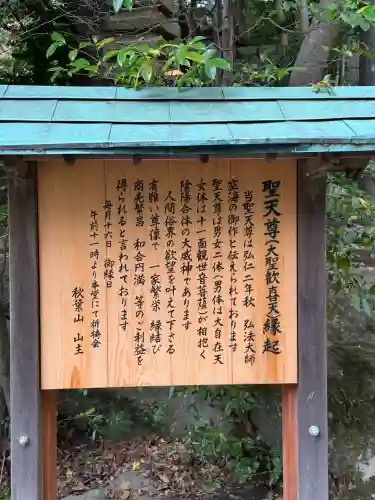 聖天尊(大聖歓喜天)縁起
当聖天尊は弘仁二年秋 弘法大師
空海の御作と伝えられております
聖天尊は男女二体(男体は大自在天
女体は十一面観世音菩薩)が相抱く
陰陽合体の大威神であります
人間俗界の欲望を叶えて下さる
有難い尊像で 家一家繁栄 縁結び
商売繁昌 和合円満 等のご利益を
得られると言われております
毎月十六日 御縁日
午前十一時より本堂にて祈祷会
秋葉山 山主